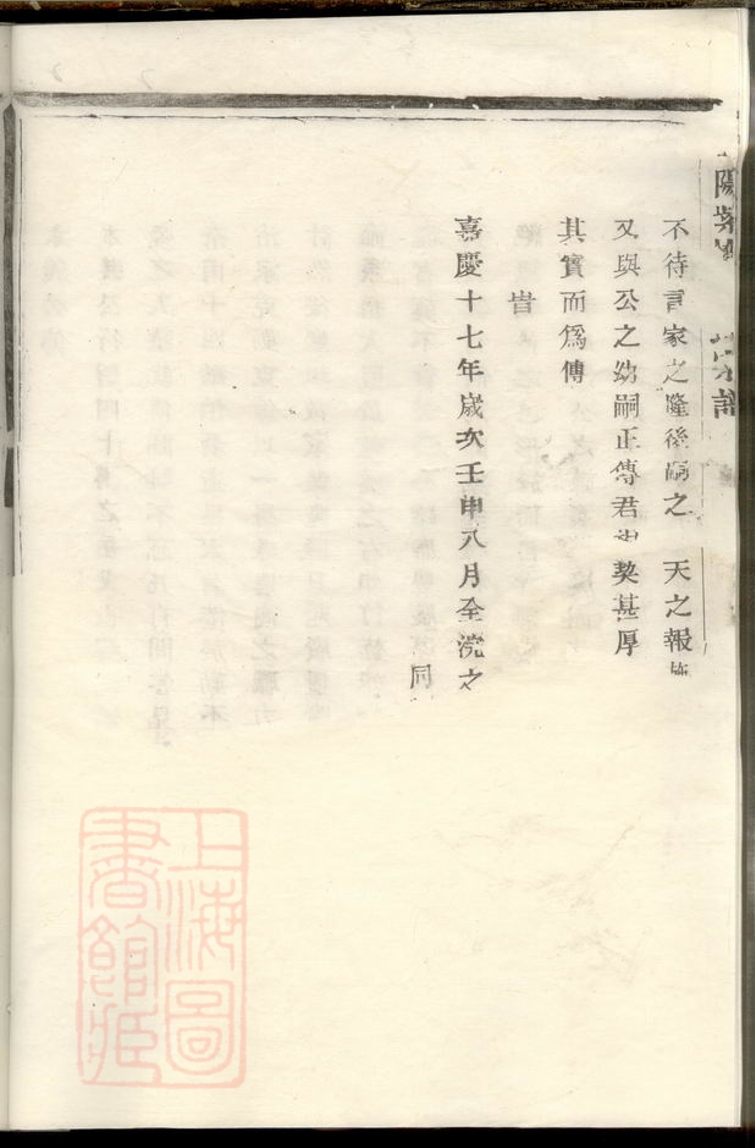 陽紫
宗譜
不待言家之隆後嗣之 天之報施
又與公之幼嗣正傳君 契甚厚
其實而爲傳
旹
嘉慶十七年歲次壬申八月全浣之
同
上海圖
書館藏